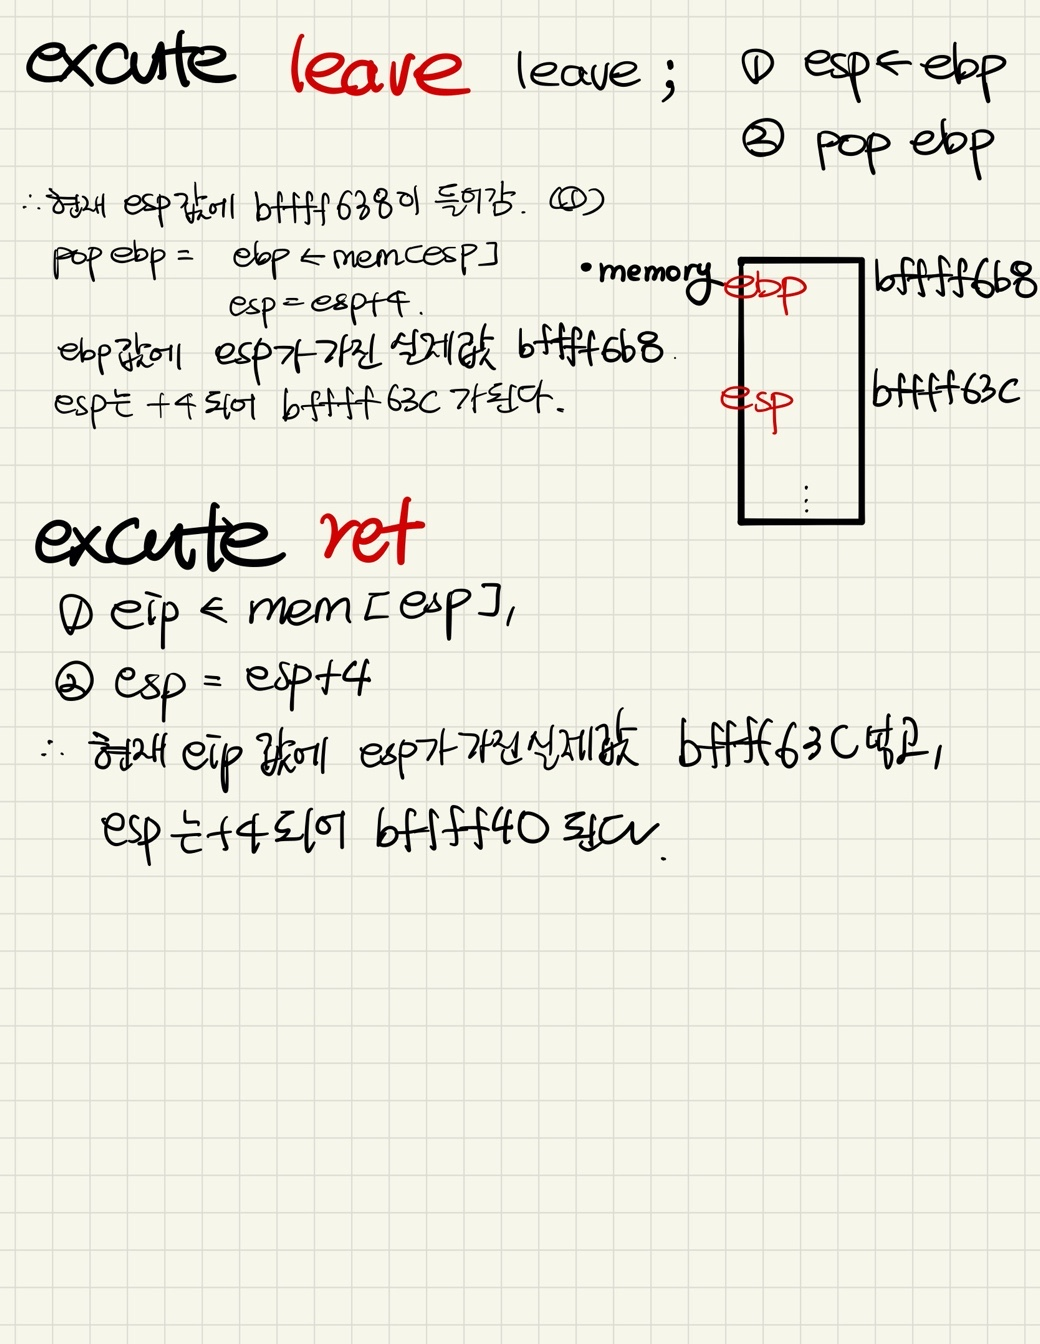 excute leave leave; ① esp ← ebp
② pop ebp
∴ 현재 esp 값에 bffff638이 들어감. (①)
pop ebp = ebp ← mem[esp]
esp = esp+4.
ebp 값에 esp가 가진 실제값 bffff6b8.
esp는 +4 되어 bffff63C 가 된다.
• memory
ebp bffff6b8
esp bffff63C
⋮
excute ret
① eip ← mem [esp],
② esp = esp+4
∴ 현재 eip 값에 esp가 가진 실제값 bffff63C 넣고,
esp 는 +4 되어 bffff40 된다.